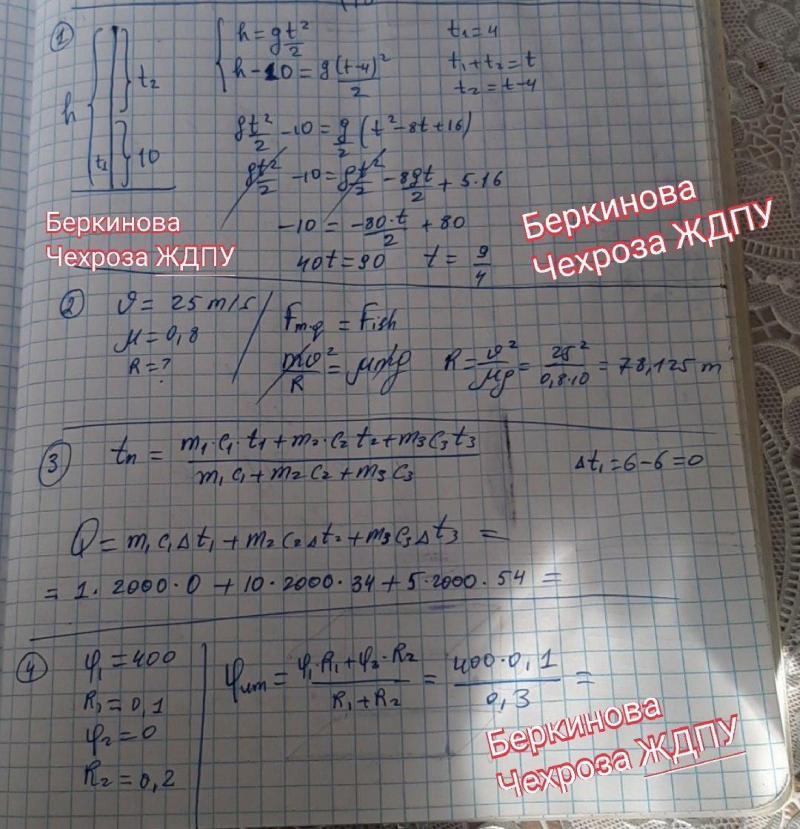 1
h = gt²/2 t₁=4
h-10 = g(t-4)²/2 t₁+t₂=t
t₂=t-4
h t₂ t₁ 10
gt²/2 -10 = g/2 (t²-8t+16)
gt²/2 -10 = gt²/2 - 8gt/2 + 5·16
-10 = -80·t/2 + 80
40t=90 t = 9/4
Беркинова
Чехроза ЖДПУ
Беркинова
Чехроза ЖДПУ
2 υ= 25 m/s Fm.q = Fish
μ=0,8
R=? mυ²/R = μmg R = υ²/μg = 25²/0,8·10 = 78,125 m
3 tn = m₁·c₁·t₁+m₂·c₂t₂+m₃c₃t₃/m₁c₁+m₂c₂+m₃c₃ Δt₁=6-6=0
Q = m₁c₁Δt₁+m₂c₂Δt₂+m₃c₃Δt₃ =
= 1·2000·0+10·2000·34+5·2000·54 =
4 φ₁=400 φum = φ₁·R₁+φ₂·R₂/R₁+R₂ = 400·0,1/0,3 =
R₁=0,1
φ₂=0
R₂=0,2
Беркинова
Чехроза ЖДПУ